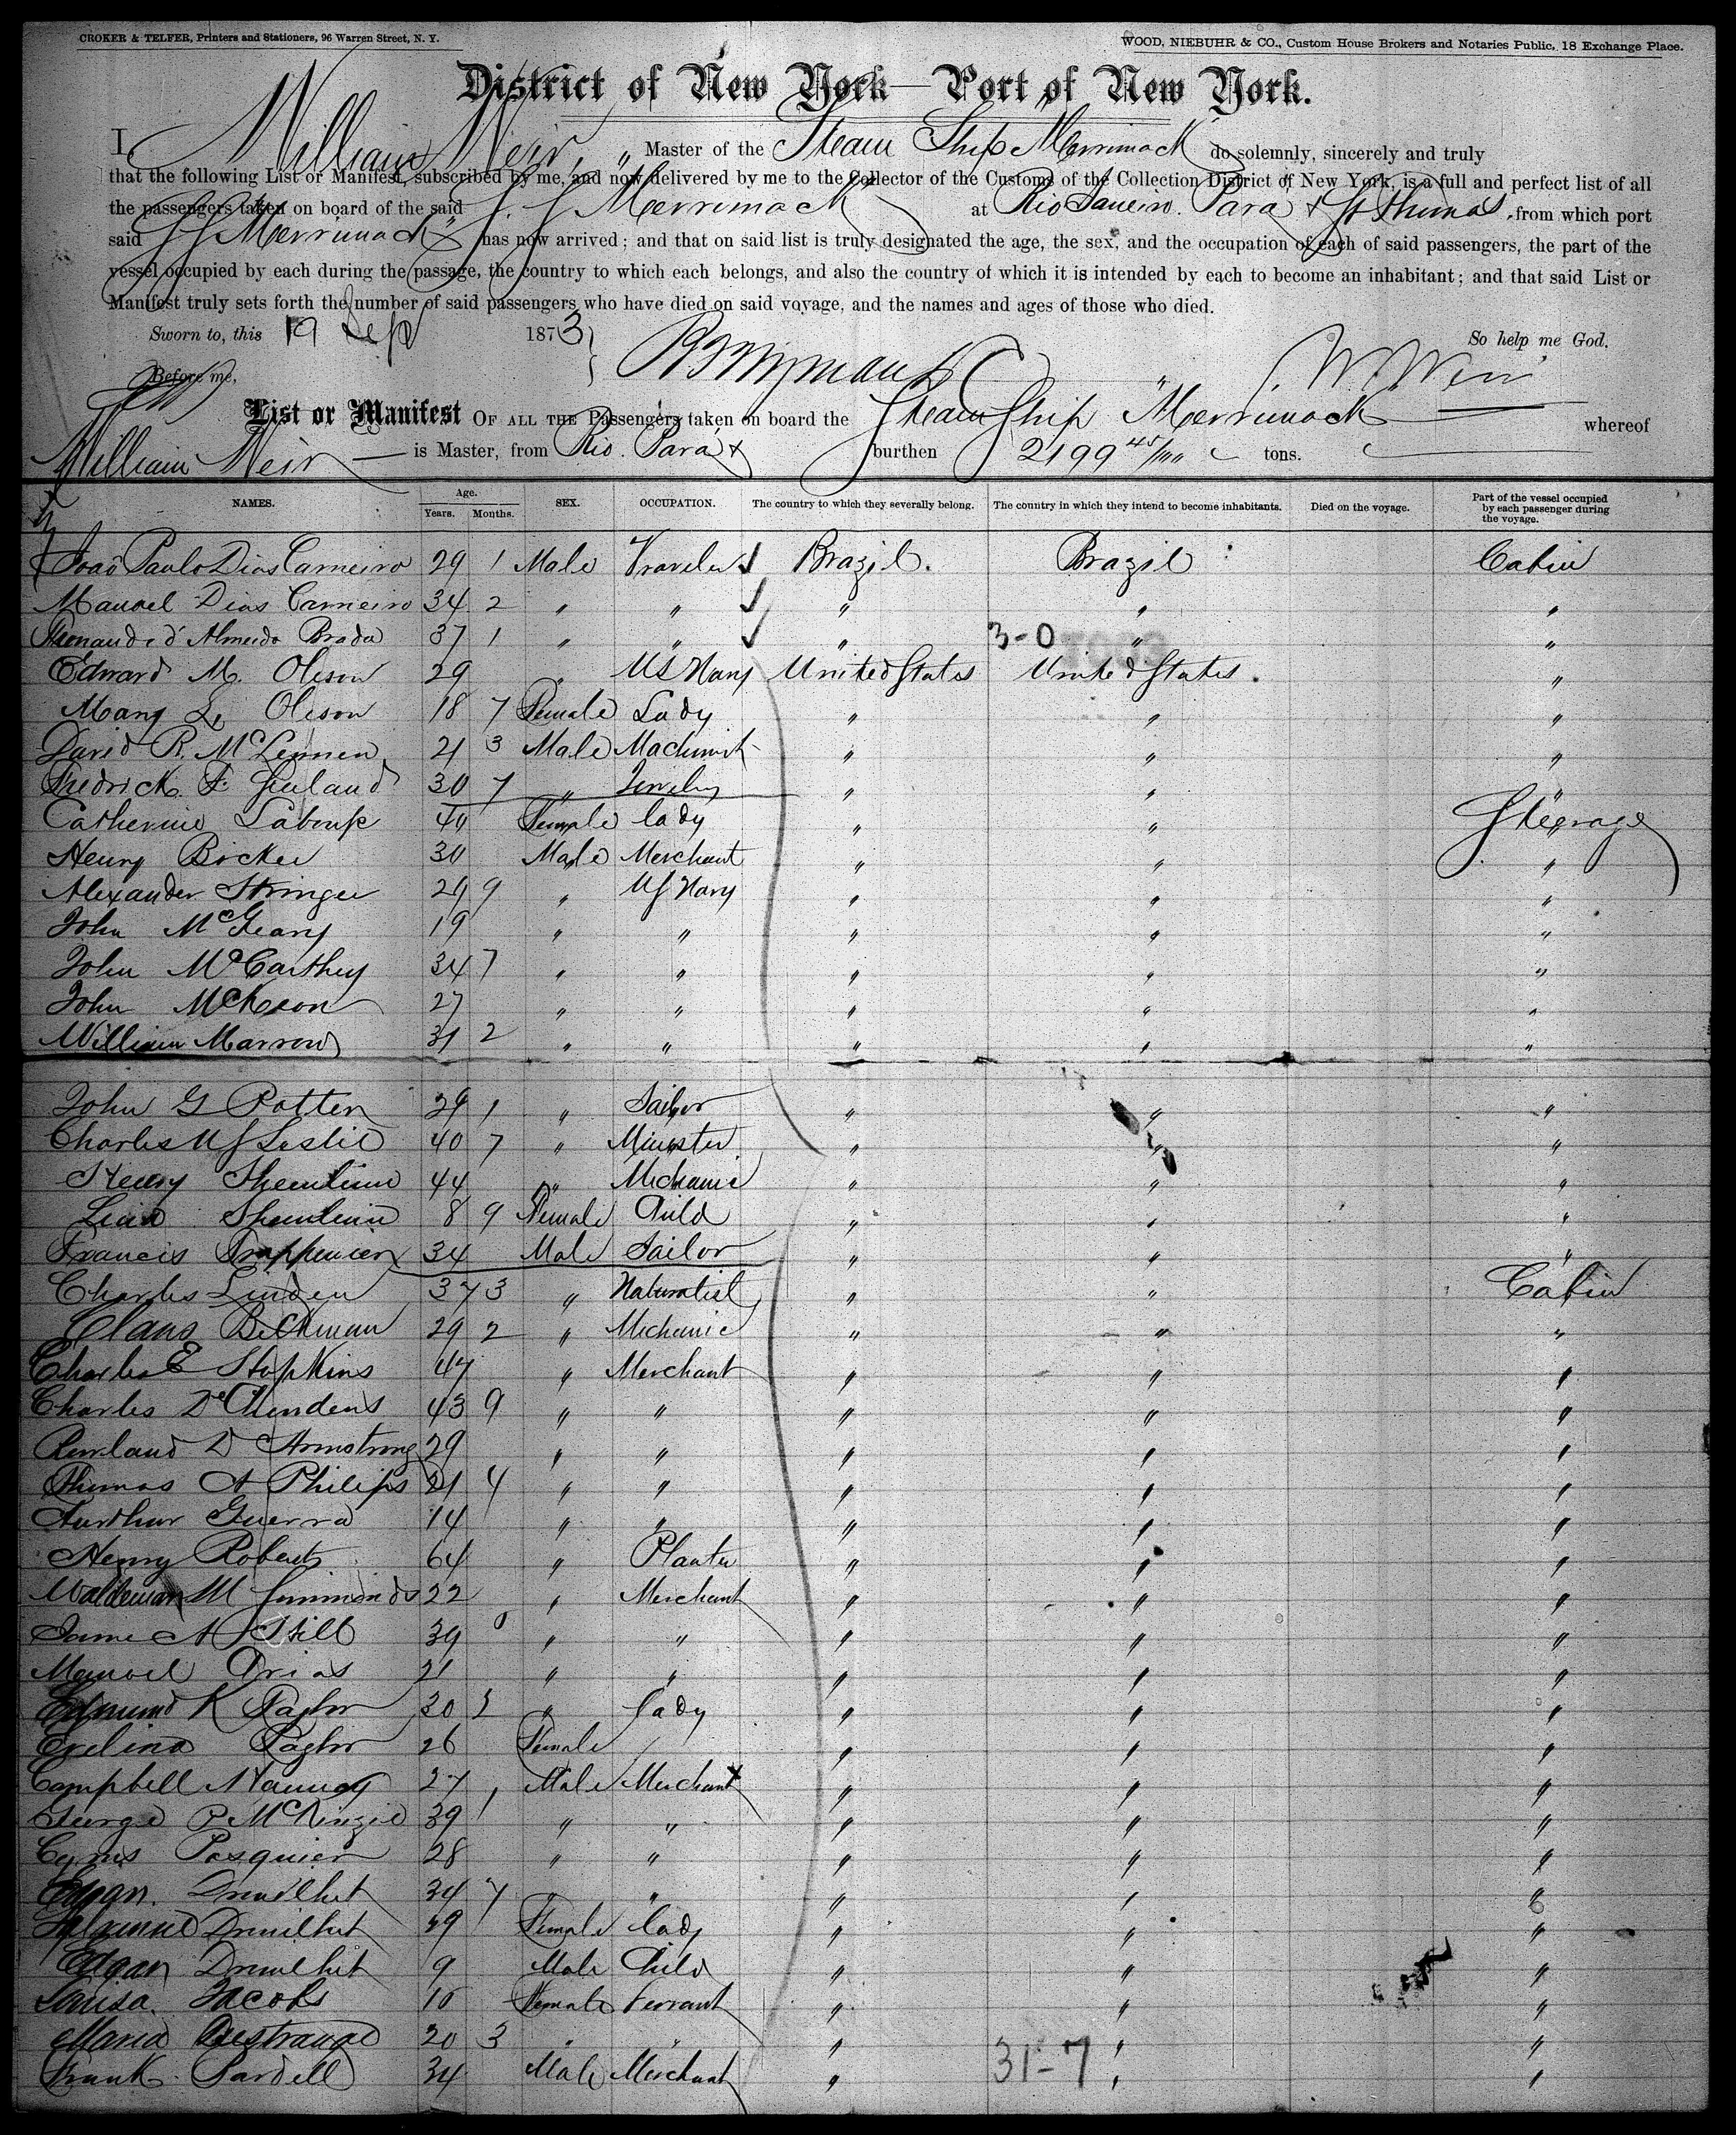 CROKER & TELFER, Printers and Stationers, 96 Warren Street, N. Y.
WOOD, NIEBUHR & CO., Custom House Brokers and Notaries Public, 18 Exchange Place.
District of New York—Port of New York.
I, William Weir, „ Master of the Steam Ship Merrimack do solemnly, sincerely and truly
that the following List or Manifest, subscribed by me, and now delivered by me to the Collector of the Customs of the Collection District of New York, is a full and perfect list of all
the passengers taken on board of the said S. S Merrimack at Rio Janeiro. Para & St Thomas, from which port
said SS Merrimack has now arrived; and that on said list is truly designated the age, the sex, and the occupation of each of said passengers, the part of the
vessel occupied by each during the passage, the country to which each belongs, and also the country of which it is intended by each to become an inhabitant; and that said List or
Manifest truly sets forth the number of said passengers who have died on said voyage, and the names and ages of those who died.
Sworn to, this 19 Sept 1873 So help me God.
Before me, W. Weir
List or Manifest OF ALL THE Passengers taken on board the Steam Ship Merrimack whereof
William Weir is Master, from Rio. Para & burthen 2199 45/100 tons.
NAMES. Age. Years. Months. SEX. OCCUPATION. The country to which they severally belong. The country in which they intend to become inhabitants. Died on the voyage. Part of the vessel occupied by each passenger during the voyage.
Joao Paulo Dias Carneiro 29 1 Male Traveler Brazil. Brazil Cabin
Manoel Dias Carneiro 34 2 " " " " "
d'Almeida Prada 37 1 " " " 3-0 " "
Edward M. Oleson 29 " US Navy United States United States. "
Mary L. Oleson 18 7 Female Lady " " "
David R. McLennen 21 3 Male Machinist " " "
Fredrick F. 30 7 " " " "
Catherine 40 Female lady " " Steerage
Henry Bocker 30 Male Merchant " " "
Alexander Stringer 29 9 " US Navy " " "
John McGeary 19 " " " " "
John McCarthey 34 7 " " " " "
John McKeon 27 " " " " "
William Marrow 31 2 " " " " "
John G Potter 29 1 " Sailor " " "
Charles US Leslie 40 7 " Minister " " "
Henry 44 " Mechanic " " "
8 9 Female Child " " "
Francis 34 Male Sailor " " "
Charles Linden 37 3 " Naturalist " " Cabin
Claus Beckman 29 2 " Mechanic " " "
Charles E Hopkins 47 " Merchant " " "
Charles 43 9 " " " " "
Rowland D Armstrong 29 " " " " "
Thomas A Philips 21 4 " " " " "
Aurthur Guerra 14 " " " " "
Henry Roberts 64 " Planter " " "
Waldemar M Simmonds 22 " Merchant " " "
Jame A Still 39 " " " " "
Manoel Arias 21 " " " " "
Edmund K Paylor 30 " lady " " "
Evelina Paylor 26 Female " " "
Campbell 27 Male Merchant " " "
George P McKinzie 39 " " " " "
Cyrus Pasquier 28 " " " " "
Edgar. Drouilhet 34 7 " " " "
Drouilhet 29 Female lady " " "
Edgar Drouilhet 9 Male Child " " "
Louisa Jacobs 10 Female Servant " " "
Maria 20 3 " " " " "
Frank Sardell 34 Male Merchant " 31-7 " "